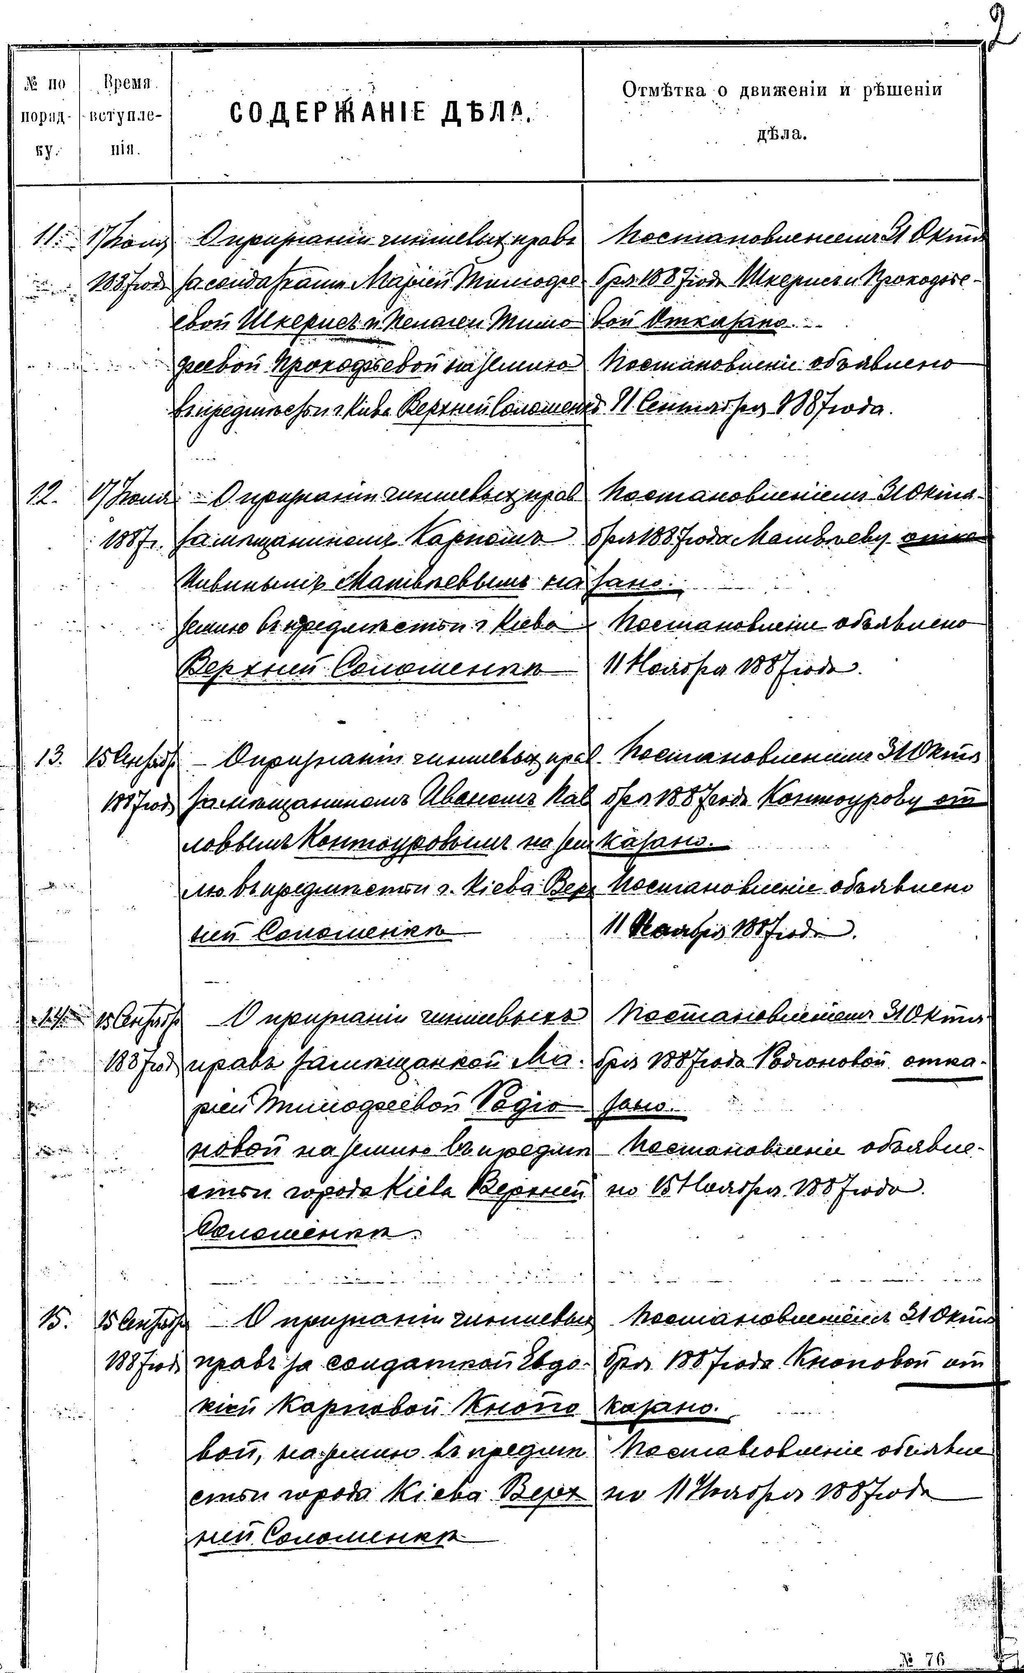 2
№ по
поряд-
ку.
Время
вступле-
нія.
СОДЕРЖАНІЕ ДѢЛА.
Отмѣтка о движеніи и рѣшеніи
дѣла.
11.
17 Іюля
1887 года
О признаніи чиншевыхъ правъ
за солдатками Маріей Тимофе-
евой Шкерисъ и Пелагеи Тимо
феевой Прокофьевой на землю
въ предмѣстьи г. Кіева Верхней Соломенкѣ
Постановленіемъ 31 Октя
бря 1887 года Шкерисъ и Прокофье-
вой Отказано.
Постановленіе объявлено
11 Сентября 1887 года.
12.
17 Іюля
1887 г.
– О признаніи чиншевыхъ прав
за мѣщаниномъ Карпомъ
Матвѣевымъ на
землю въ предмѣстьи г. Кіева
Верхней Соломенкѣ
Постановленіемъ 31 Октя-
бря 1887 года Матвѣеву отка
зано.
Постановленіе объявлено
11 Ноября 1887 года.
13.
15 Сентября
1887 года
– О признаніи чиншевыхъ прав.
за мѣщаниномъ Иваномъ Пав
ловымъ Контоуровымъ на зем
лю въ предмѣстьи г. Кіева Верх
ней Соломенкѣ
Постановленіемъ 31 Октя
бря 1887 года Контоурову от
казано.
Постановленіе объявлено
11 Ноября 1887 года.
14.
15 Сентября
1887 года
– О признаніи чиншевыхъ
правъ за мѣщанкой Ма-
ріей Тимофеевой Родіо
новой на землю въ предмѣ
стьи города Кіева Верхней
Соломенкѣ.
Постановленіемъ 31 Октя
бря 1887 года Родіоновой отка-
зано.
– Постановленіе объявле-
но 15 Ноября 1887 года.
15.
15 Сентября
1887 года
– О признаніи чиншевыхъ
правъ за солдаткой Евдо-
кіей Карповой Кнопо
вой, на землю въ предмѣ
стьи города Кіева Верх
ней Соломенкѣ
Постановленіемъ 31 Октя
бря 1887 года Кноповой от
казано.
Постановленіе объявле
но 11 Ноября 1887 года
№ 76